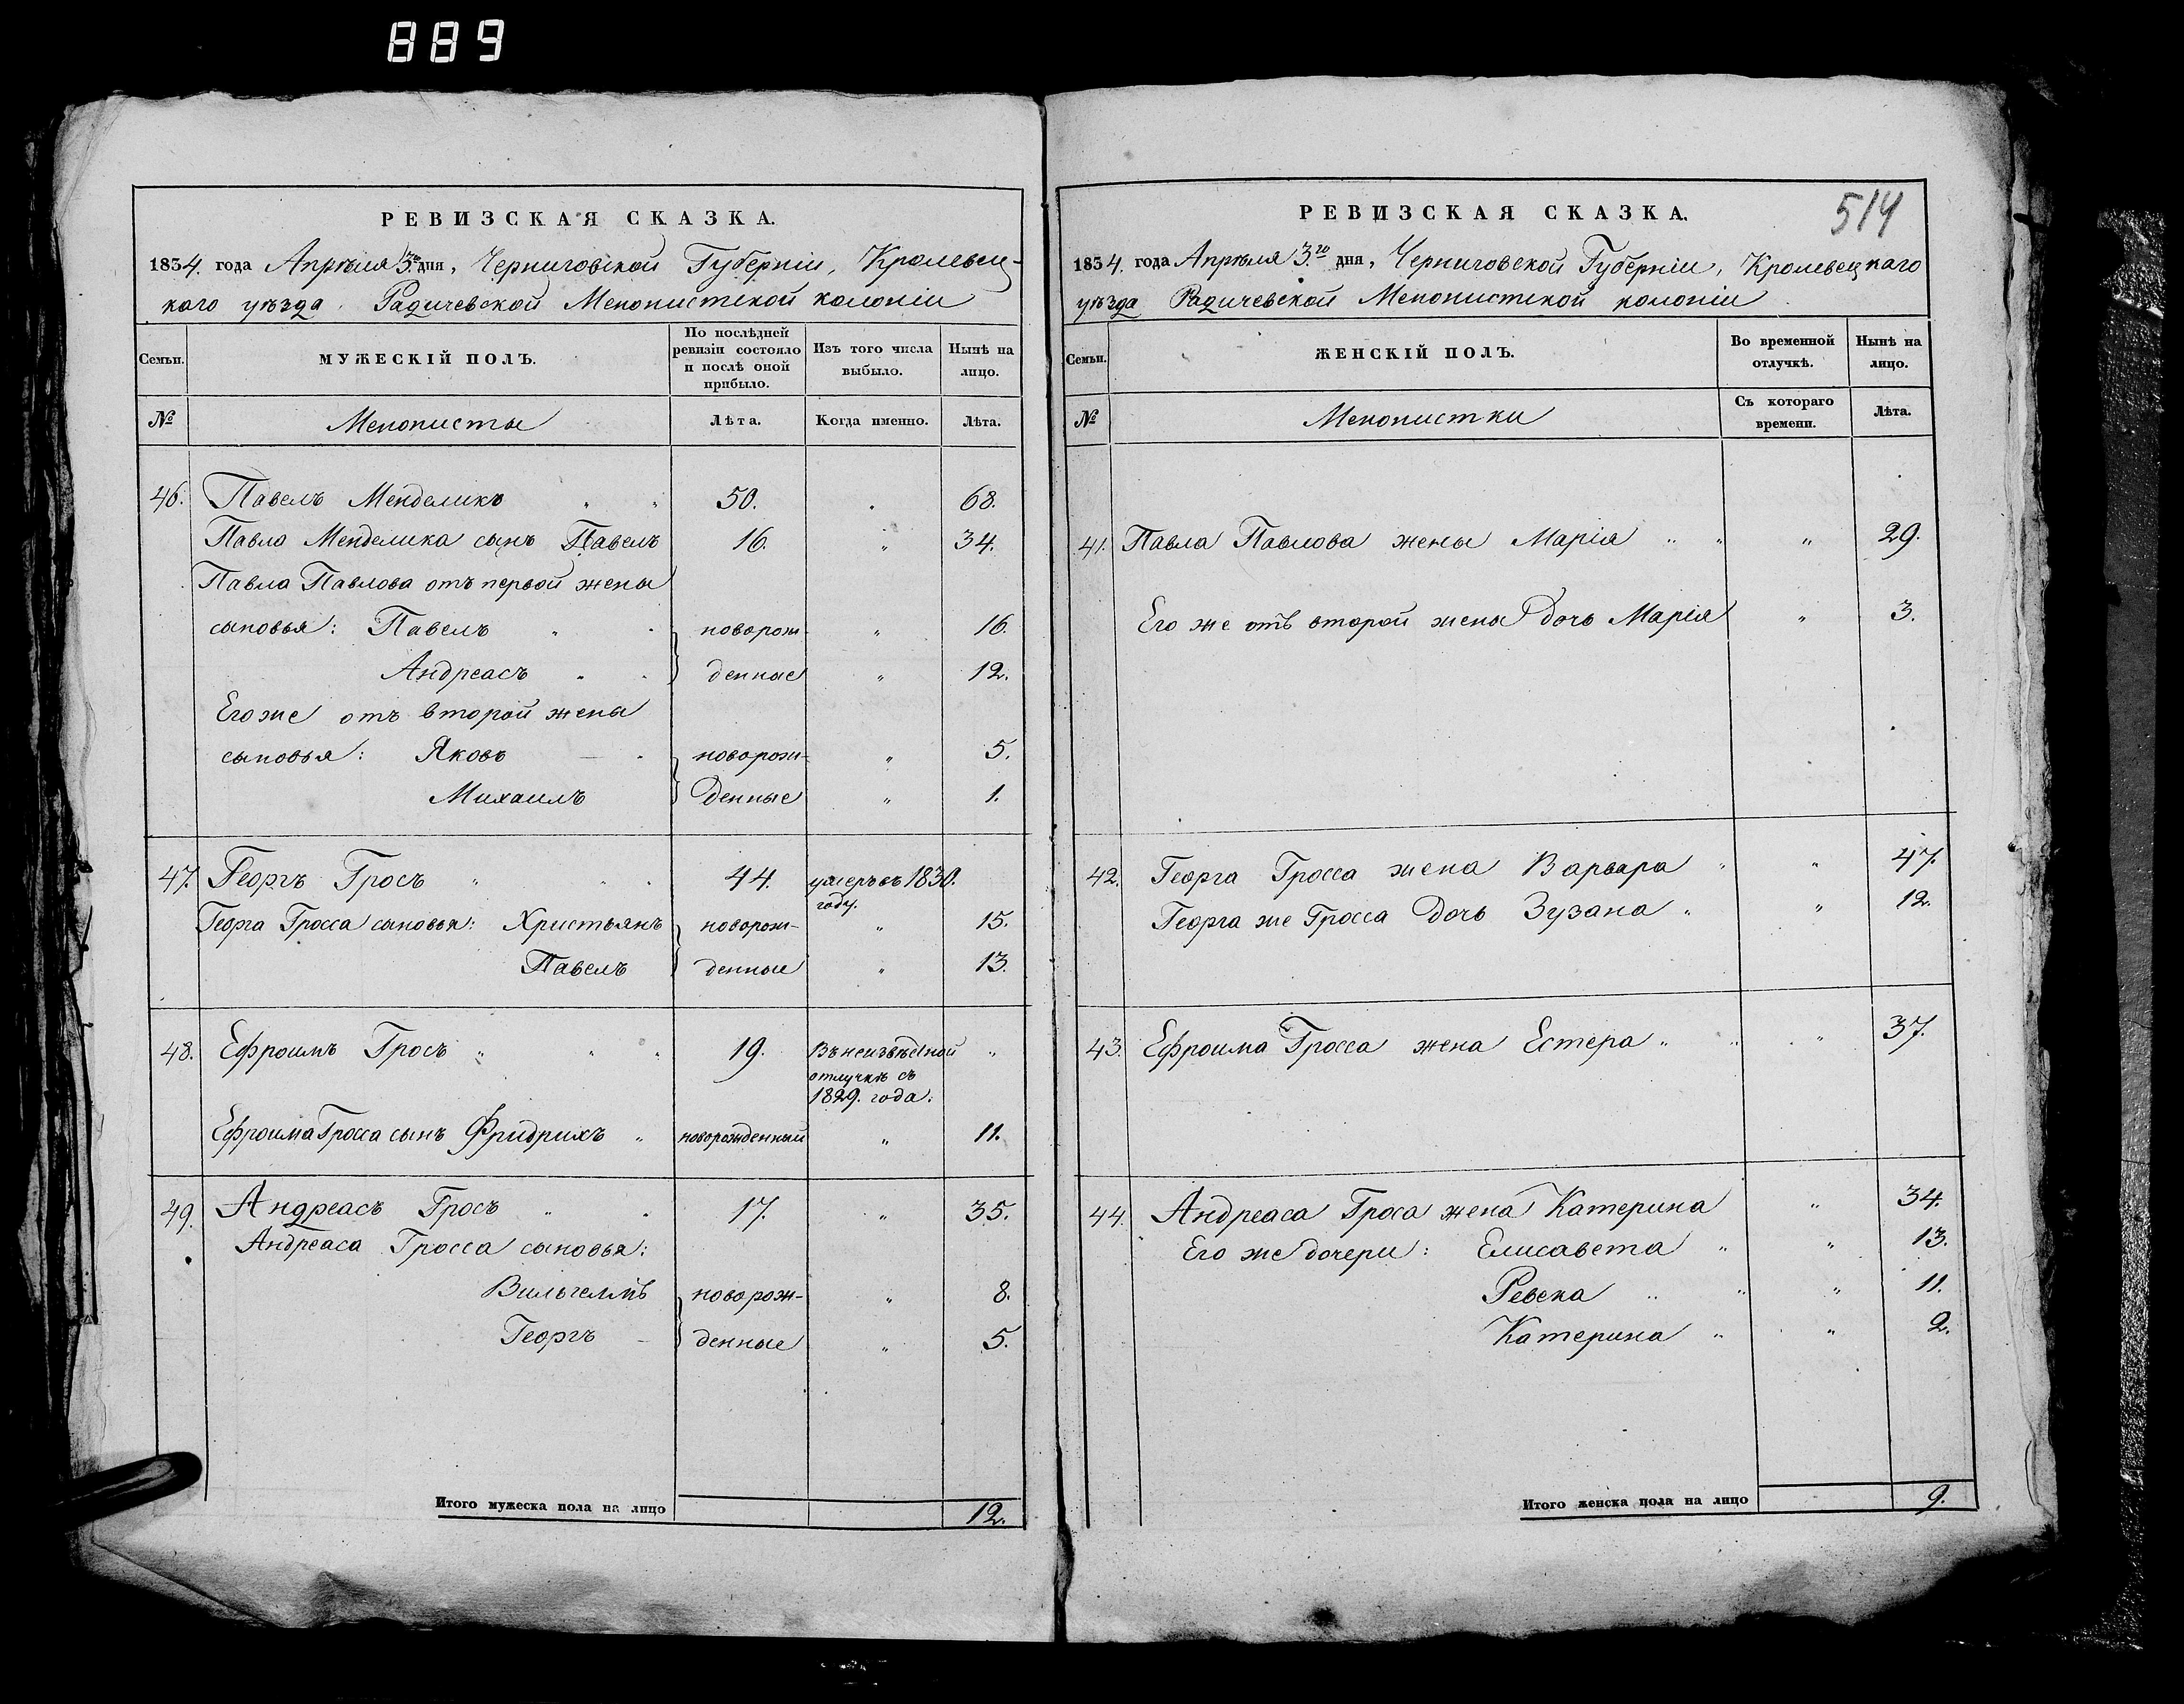 889
РЕВИЗСКАЯ СКАЗКА.
1834. года Апрѣля 3го дня, Черниговской Губерніи, Кролевец-
каго уѣзда Радичевской Менонистской колоніи
Семьи. МУЖЕСКІЙ ПОЛЪ. По послѣдней ревизіи состояло и послѣ оной прибыло. Изъ того числа выбыло. Нынѣ на лицо.
№ Менонисты Лѣта. Когда именно. Лѣта.
46. Павелъ Менделикъ " " 50. " 68.
Павла Менделика сынъ Павелъ 16. " 34.
Павла Павлова отъ первой жены
сыновья: Павелъ " " новорож- " 16.
Андреасъ " " денные " 12.
Его же отъ второй жены
сыновья: Яковъ — " новорож- " 5.
Михаилъ денные " 1.
47. Георгъ Гросъ " " " 44. умеръ въ 1830.
году.
Георга Гросса сыновья: Христьянъ новорож- " 15.
Павелъ денные " 13.
48. Ефроимъ Гросъ " " " 19. Въ неизвѣстной "
отлучкѣ съ
1829. года.
Ефроима Гросса сынъ Фридрихъ " новорожденный " 11.
49. Андреасъ Гросъ " " 17. " 35.
Андреаса Гросса сыновья:
Вильгелмъ новорож- " 8.
Георгъ — денные " 5.
Итого мужеска пола на лицо 12.
514
РЕВИЗСКАЯ СКАЗКА.
1834. года Апрѣля 3.го дня, Черниговской Губерніи, Кролевецкаго
уѣзда Радичевской Менонистской колоніи
Семьи. ЖЕНСКІЙ ПОЛЪ. Во временной отлучкѣ. Нынѣ на лицо.
№ Менонистки Съ котораго времени. Лѣта.
41. Павла Павлова жены Марія " " " 29.
Его же отъ второй жены дочь Марія " 3.
42. Георга Гросса жена Варвара " " 47.
Георга же Гросса дочь Зузана " " 12.
43. Ефроима Гросса жена Естера " " " 37.
44. Андреаса Гроса жена Катерина " 34.
Его же дочери: Елисавета " " 13.
Ревека " " " 11.
Катерина " " 2.
Итого женска пола на лицо 9.